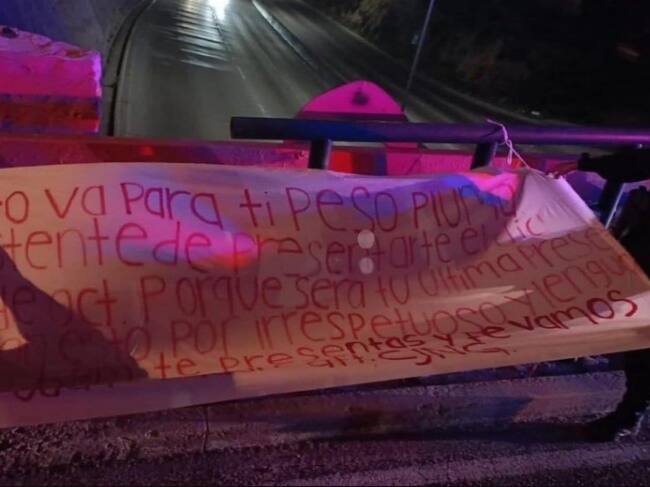 o va para ti Peso Pluma
stente de presentarte el dic
de oct. Porque sera tu ultima prese
esto por irrespetuoso y lengu
te presentas y te vamos